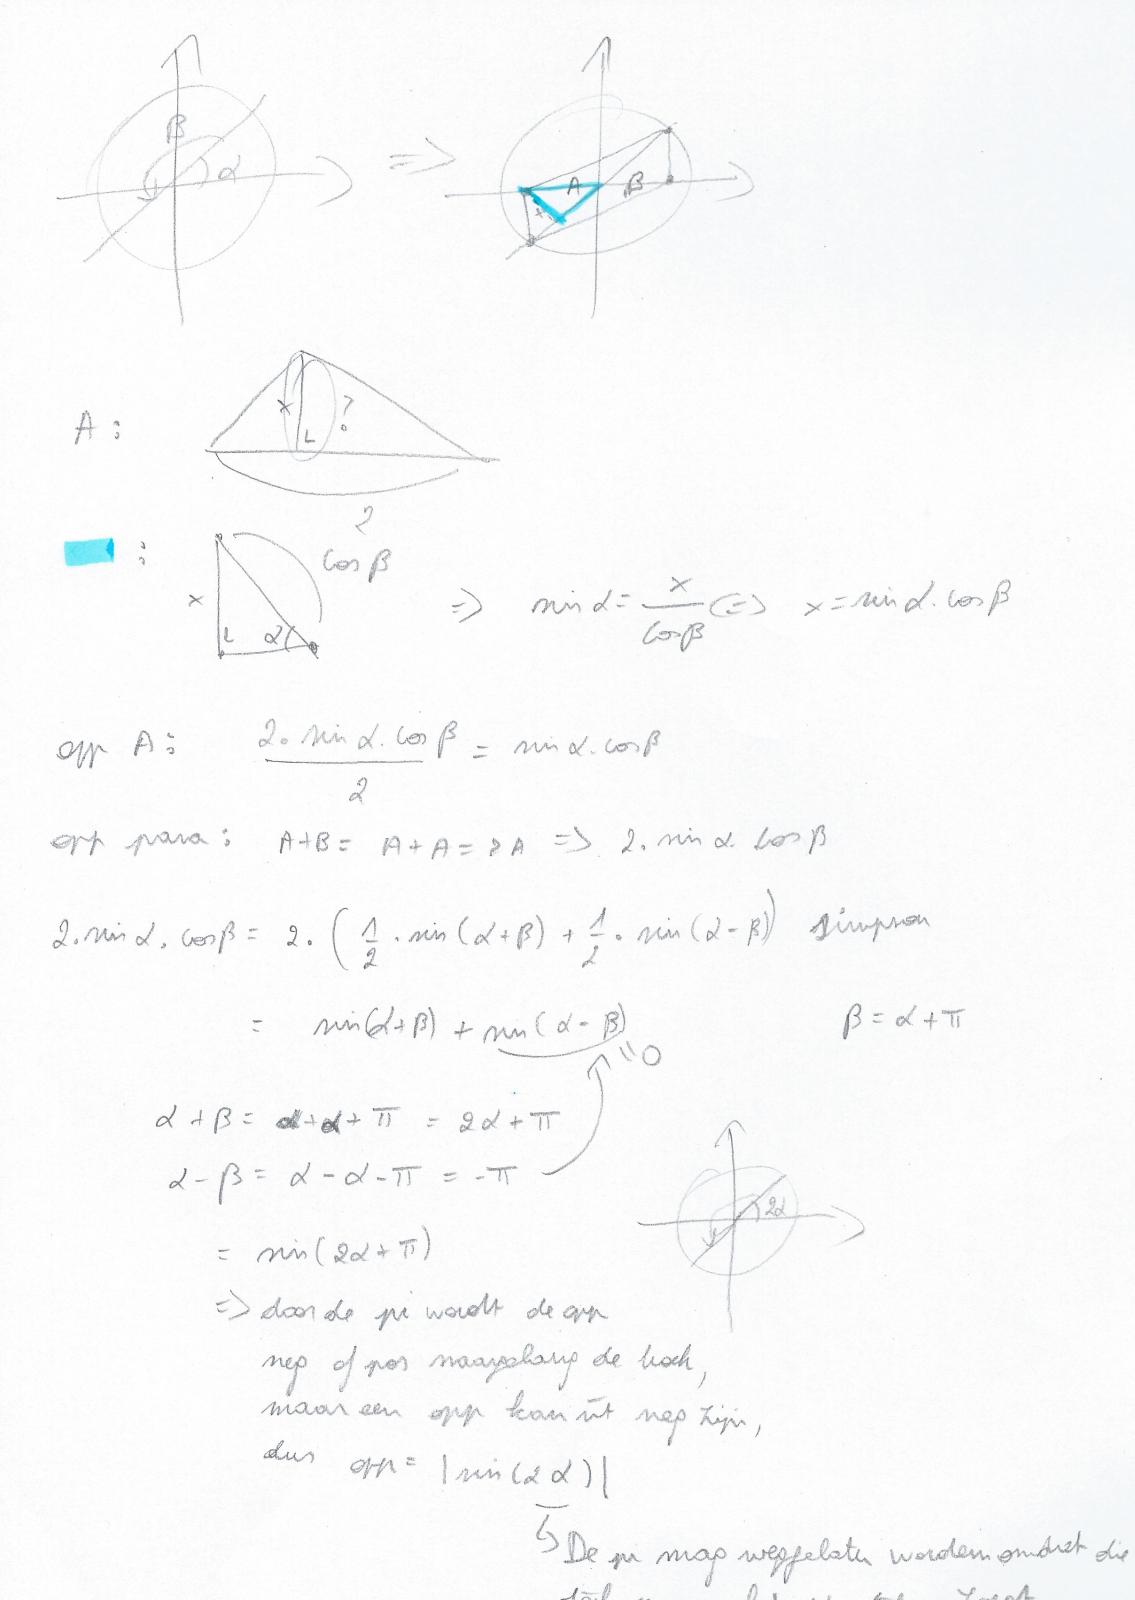 β α => A β x
A: x ?
2
: cos β
x α => sin α = x / cos β <=> x = sin α . cos β
opp A: 2. sin α. cos β / 2 = sin α. cos β
opp para: A+B = A+A = 2A => 2. sin α. cos β
2. sin α. cos β = 2. (1/2 . sin(α+β) + 1/2 . sin(α-β)) simpson
= sin(α+β) + sin(α-β) β = α + π
= 0
α + β = α + α + π = 2α + π
α - β = α - α - π = -π
2α
= sin(2α + π)
=> door de pi wordt de opp
neg of pos naargelang de hoek,
maar een opp kan niet neg zijn,
dus opp = |sin(2α)|
De pi mag weggelaten worden omdat die